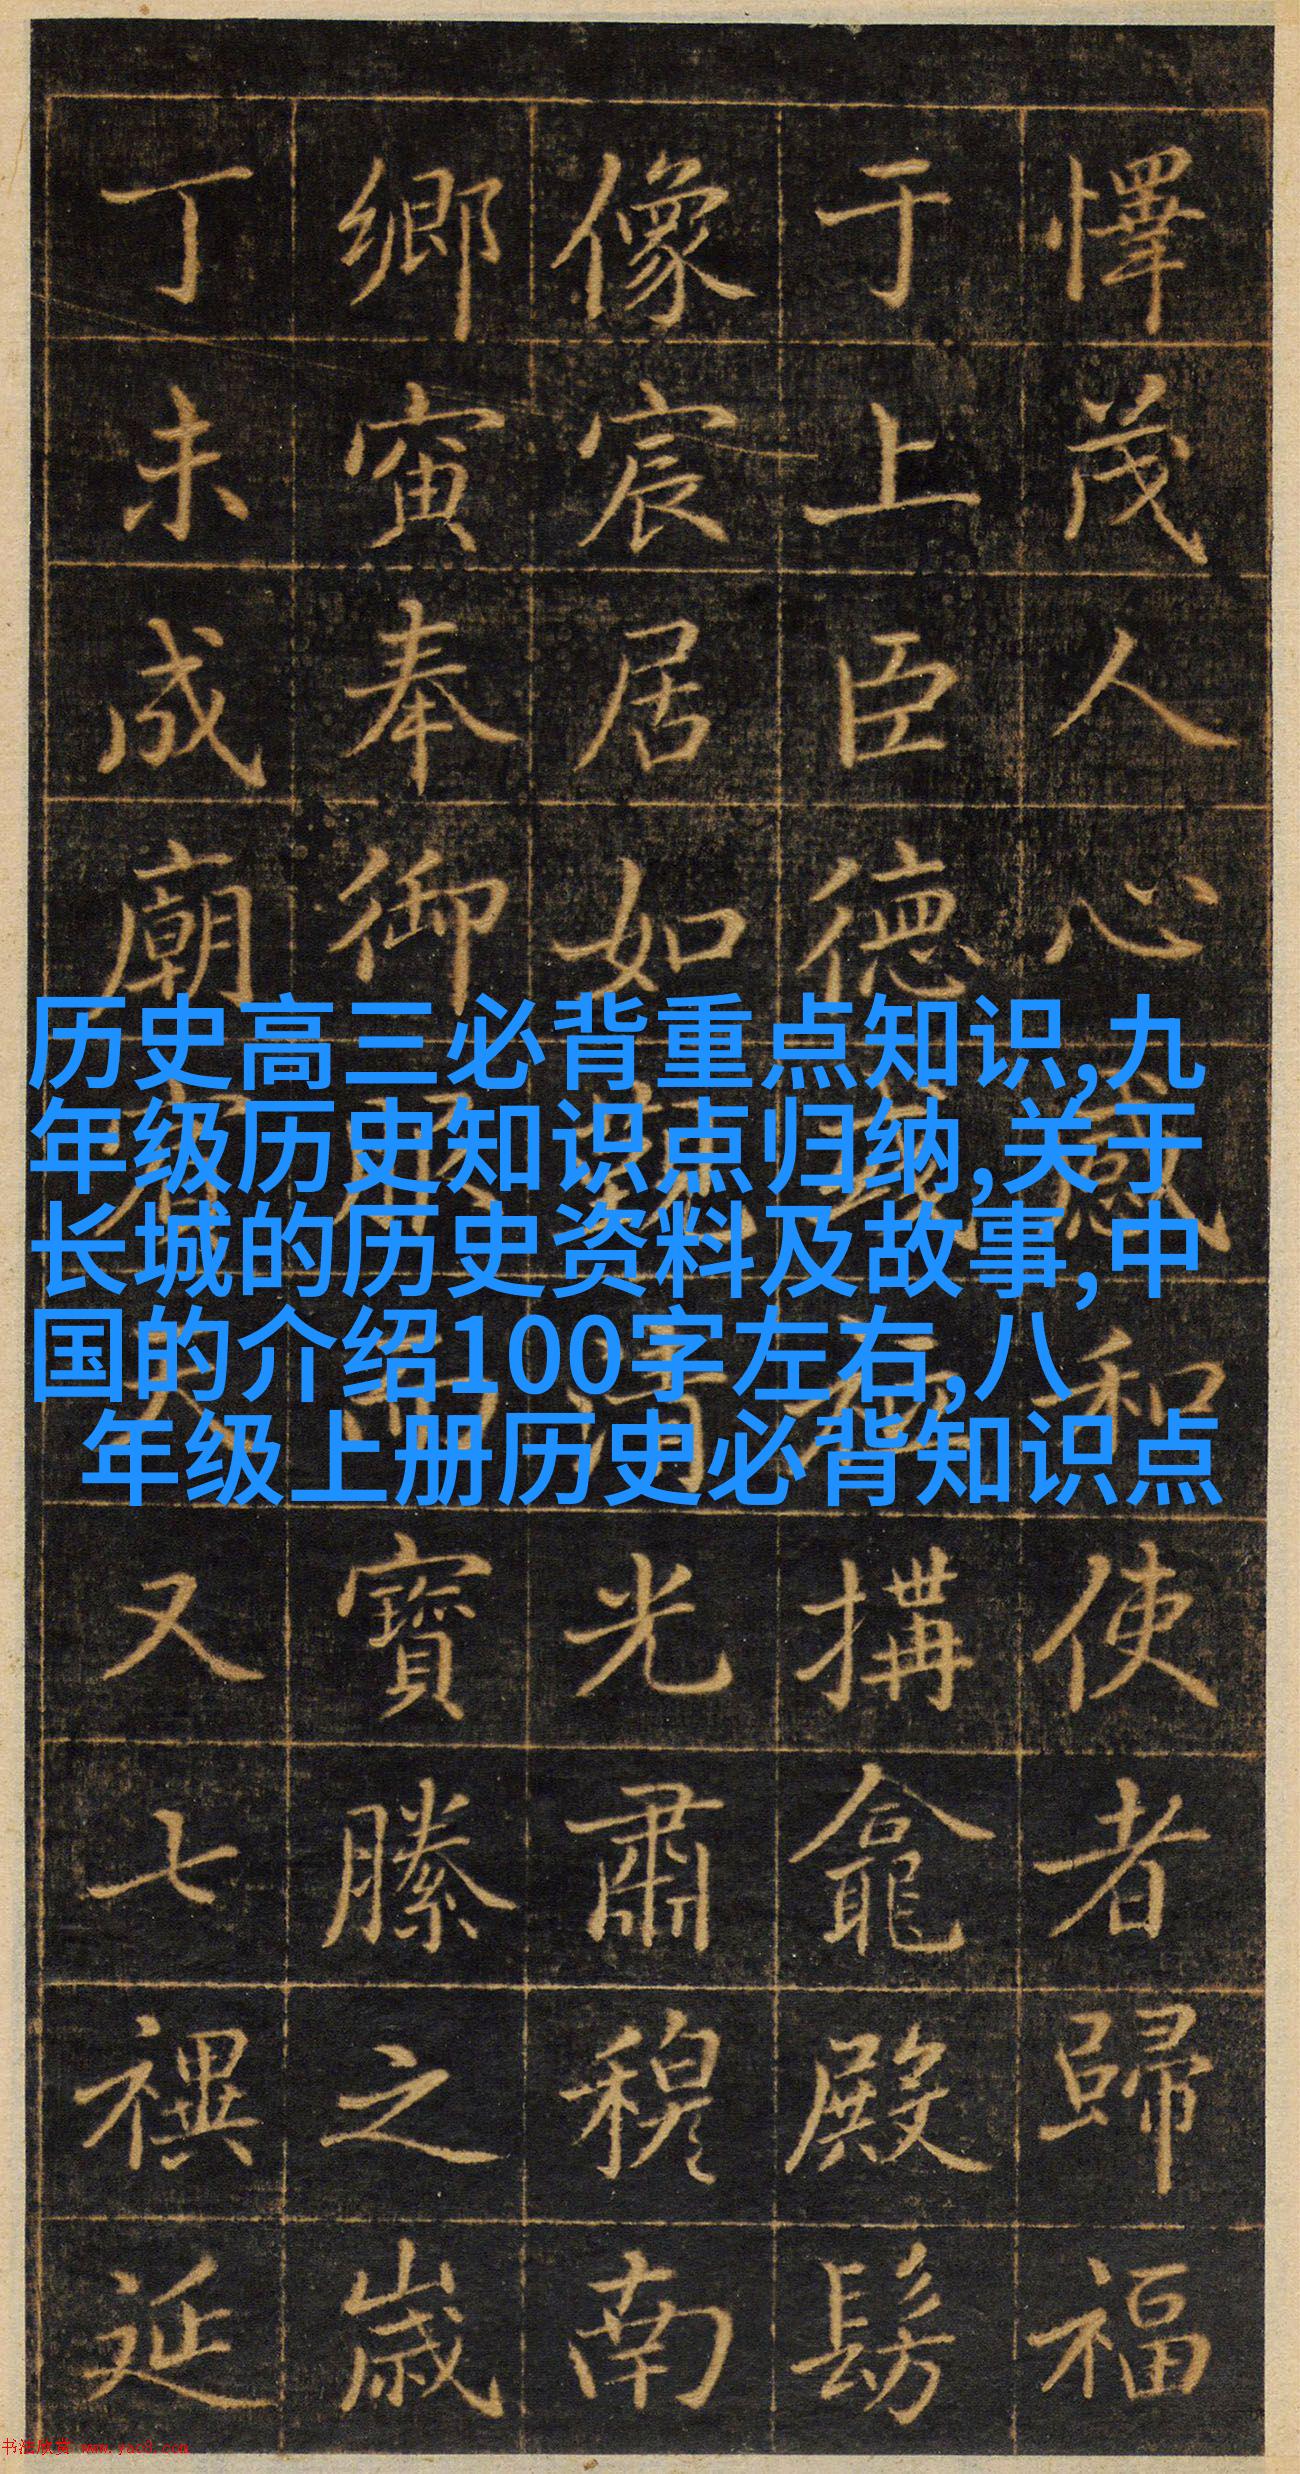 懌茂人心感和使者歸福
于上臣德搆龕殿髣
像宸居如清光肅穆南
鄉寅奉御服寶縢之歲
丁未成廟又七禩延
历史高三必背重点知识,九
年级历史知识点归纳,关于
长城的历史资料及故事,中
国的介绍100字左右,八
年级上册历史必背知识点
书法欣赏 www.yac8.com